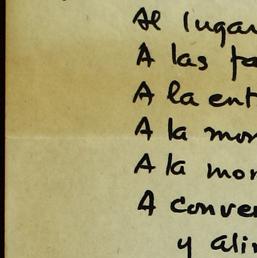 Al lugar
A las fa
A la ent
A la mon
A la mon
A conver
y alin